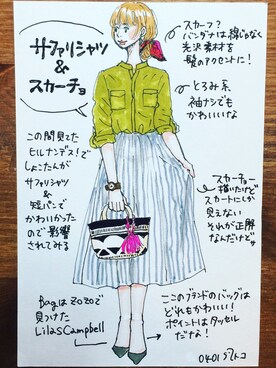 サファリシャツ
&
スカーチョ
スカーフ?
バンダナは綿じゃなく
光沢素材を
髪のアクセントに!
とろみ系
袖ナシでも
かわいいな
この間見てた
ヒルナンデス!で
しょこたんが
サファリシャツ
&
短パンで
かわいかった
ので影響
されてみる
スカーチョ
描いたけど
スカートにしか
見えない
それが正解
なんだけどッ
BagはZOZOで
見つけた
LilasCampbell
ここのブランドのバッグは
どれもかわいい!
ポイントはタッセル
だな!